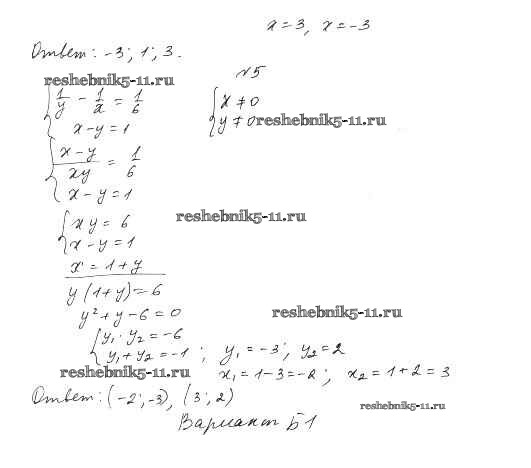 x = 3, x = -3
Ответ: -3; 1; 3.
reshebnik5-11.ru
№5
{ 1/y - 1/x = 1/6
x - y = 1
{ x ≠ 0
y ≠ 0
reshebnik5-11.ru
{ (x - y)/xy = 1/6
x - y = 1
{ xy = 6
x - y = 1
reshebnik5-11.ru
x = 1 + y
y(1+y) = 6
y² + y - 6 = 0
reshebnik5-11.ru
{ y₁ · y₂ = -6
y₁ + y₂ = -1 ; y₁ = -3; y₂ = 2
reshebnik5-11.ru
x₁ = 1 - 3 = -2; x₂ = 1 + 2 = 3
Ответ: (-2; -3), (3; 2)
reshebnik5-11.ru
Вариант Б1